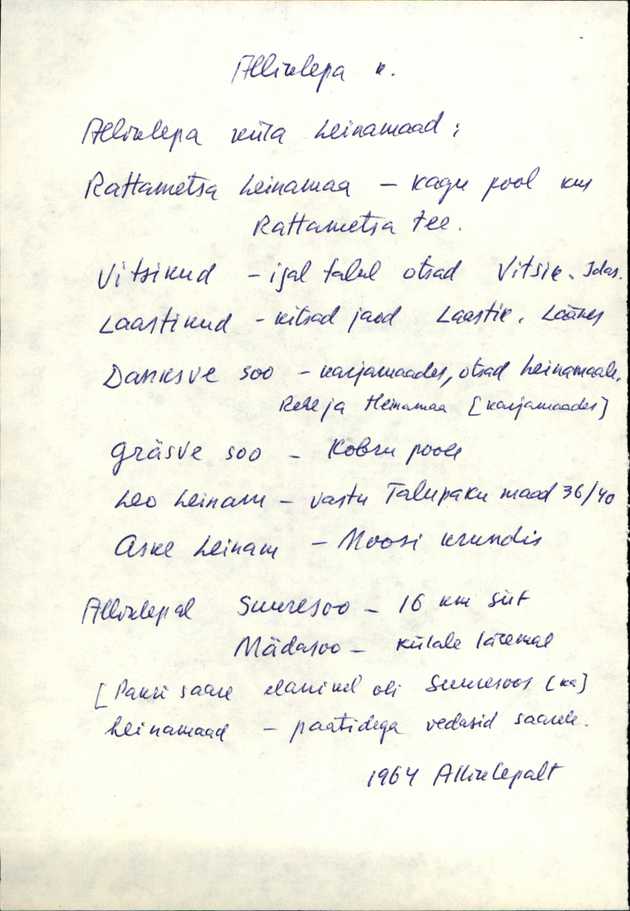 Alliklepa k.
Alliklepa küla heinamaad:
Rattametsa heinamaa – kagu pool km
Rattametsa tee.
Vitsikud – igal talul otsad Vitsik. Idas.
Laastikud – kitsad jaod Laastik. Läänes
Danksve soo – karjamaades, otsad heinamaale.
Rehe ja Heinamaa [karjamaades]
Gräsve soo – Kobru poole
Leo heinam – vastu Talupaku maad 36/40
Aske heinam – Moosi krundis
Alliklepal Suuresoo – 16 km siit
Mädasoo – külale lähemal
[Pakri saare elanikel oli Suuresoos [ka]
heinamaad – paatidega vedasid saarele.
1964 Alliklepalt